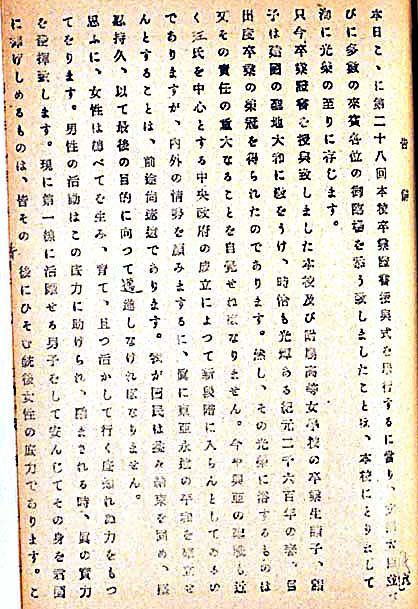 告辭
本日こゝに第二十八回本校卒業證書授與式を擧行するに當り、
びに多數の來賓各位の御臨場を忝う致しましたことは、本校にとりまして
洵に光榮の至りに存じます。
只今卒業證書を授與致しました本校及び附屬高等女學校の卒業生諸子、諸
子は建國の聖地大和に教をうけ、時恰も光輝ある紀元二千六百年の春、目
出度卒業の榮冠を得られたのであります。然し、その光榮に浴するものは
又その責任の重大なることを自覺せねばなりません。今や興亞の聖業も近
く汪氏を中心とする中央政府の成立によつて新段階に入らんとしてゐるの
でありますが、内外の情勢を顧みまするに、眞に東亞永遠の平和を確立せ
んとすることは、前途尚遼遠であります。我が國民は益々結束を固め、堅
忍持久、以て最後の目的に向つて邁進しなければなりません。
思ふに、女性は總べてを生み、育て、且つ活かして行く底知れぬ力をもつ
てをります。男性の活動はこの底力に助けられ、勵まされる時、眞の實力
を發揮致します。現に第一線に活躍せる男子をして安んじてその身を君國
に捧げしめるものは、皆その 後にひそむ銃後女性の底力であります。こ